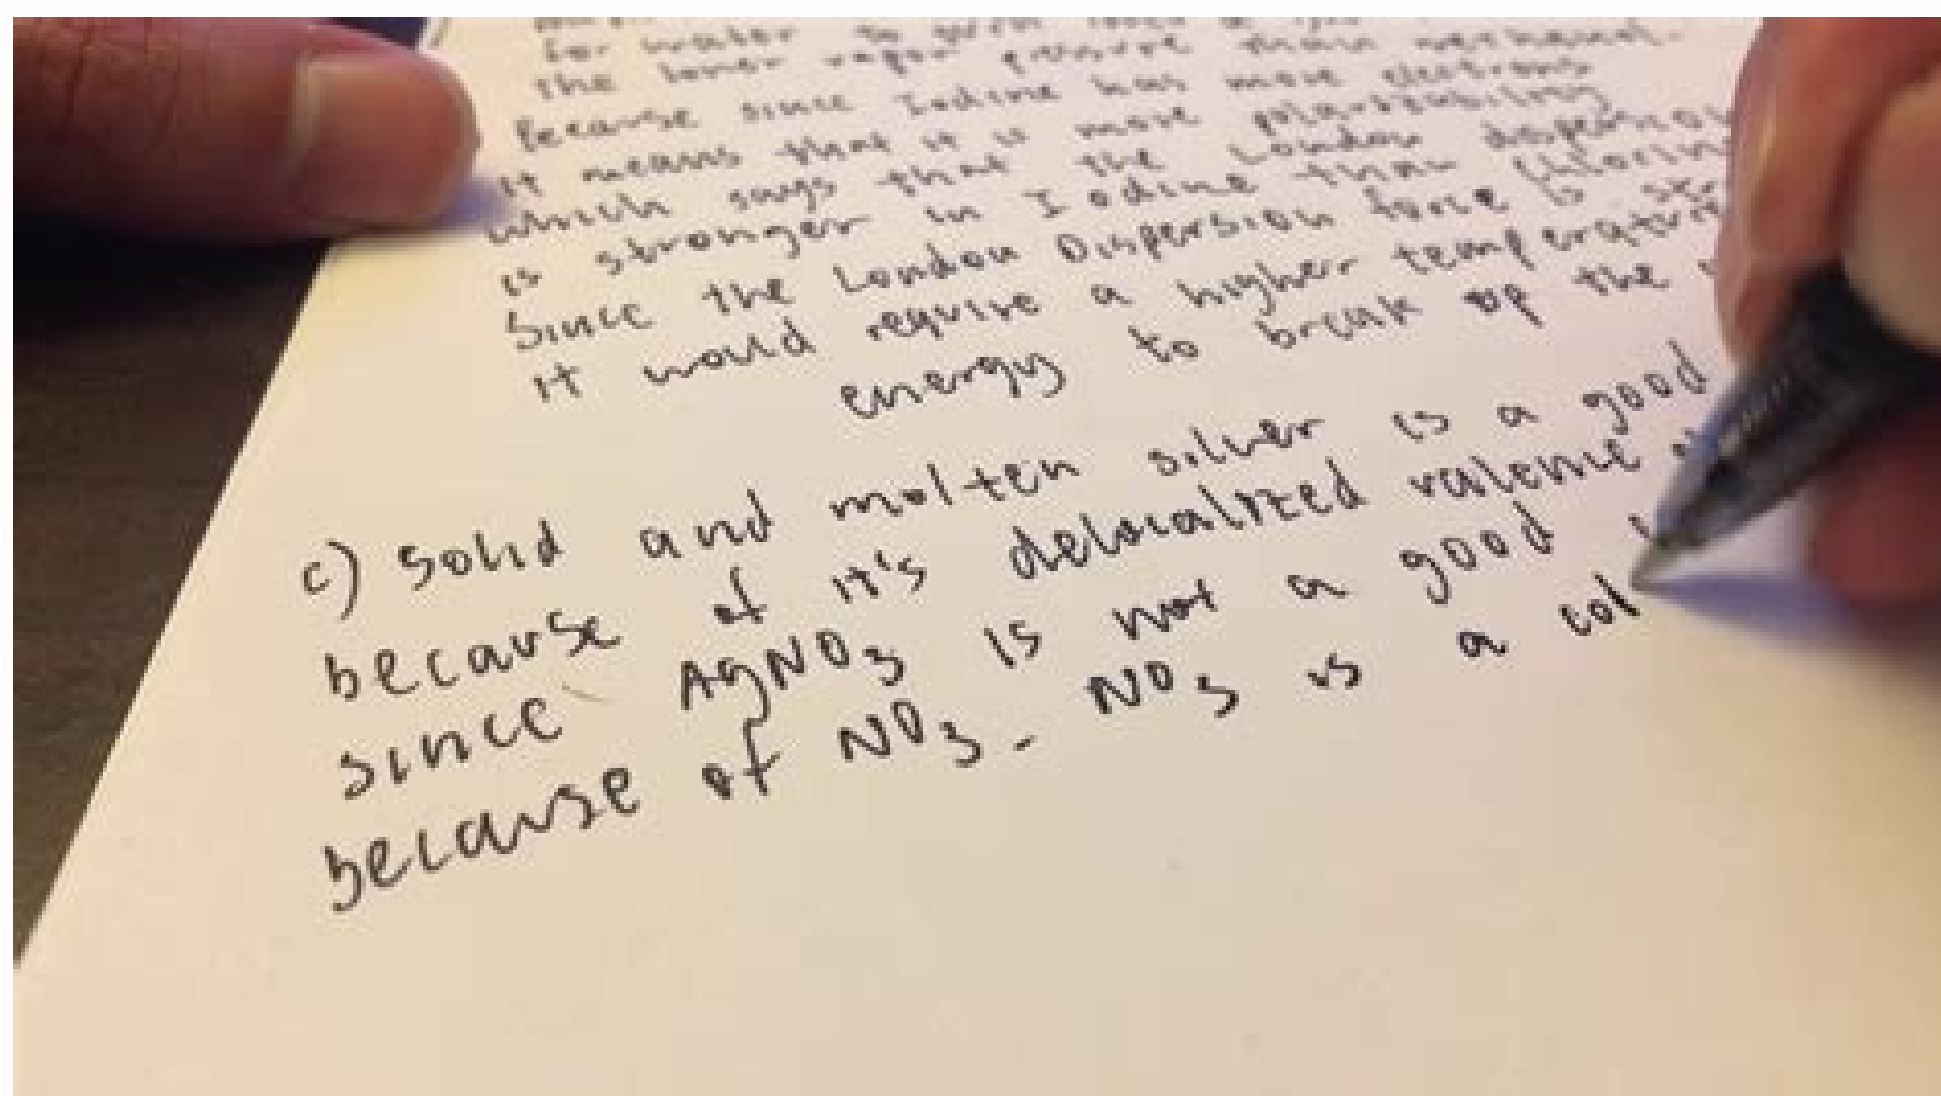 for water to
the lower vapor pressure than methanol.
Because since Iodine has more electrons
it means that it is more polarizability
which says that the London dispersion
is stronger in Iodine than Chlorin
Since the London Dispersion force is
it would require a higher temperature
energy to break up the
c) solid and molten silver is a good
because of it's delocalized valence
since AgNO3 is not a good
because of NO3. NO3 is a col